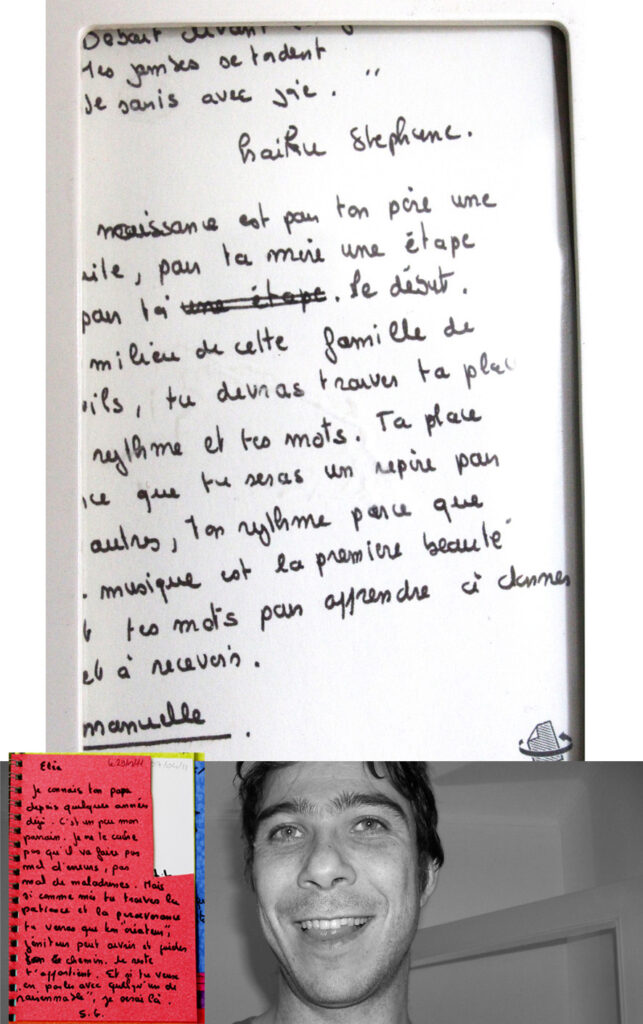 Debout devant
tes jambes se tordent
Je souris avec joie. "
haïku Stephane.
naissance est pour ton père une
pour ta mère une étape
pour toi une étape. Le début.
milieu de cette famille de
tu devras trouver ta place
rythme et tes mots. Ta place
ce que tu seras un repère pour
autres, ton rythme parce que
musique est la première beauté
tes mots pour apprendre à donner
et à recevoir.
manuelle.
Je connais ton papa
depuis quelques années
déjà. C'est un peu mon
parrain. Je ne te cache
pas qu'il va faire pas
mal d'erreurs, pas
mal de maladresses. Mais
si comme moi tu trouves la
patience et la persévérance
tu verras que ton "créateur",
géniteur peut ouvrir et guider
le chemin. Le reste
t'appartient. Et si tu veux
en parler avec quelqu'un de
raisonnable", je serai là.
S.G.